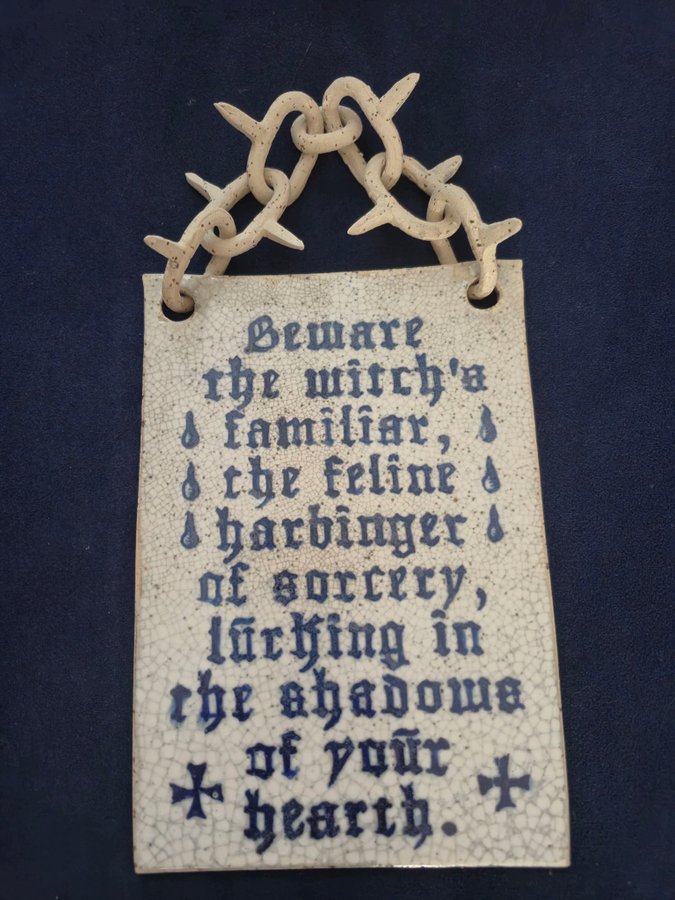 Beware
the witch's
familiar,
the feline
harbinger
of sorcery,
lūrking in
the shadows
of yoūr
hearth.